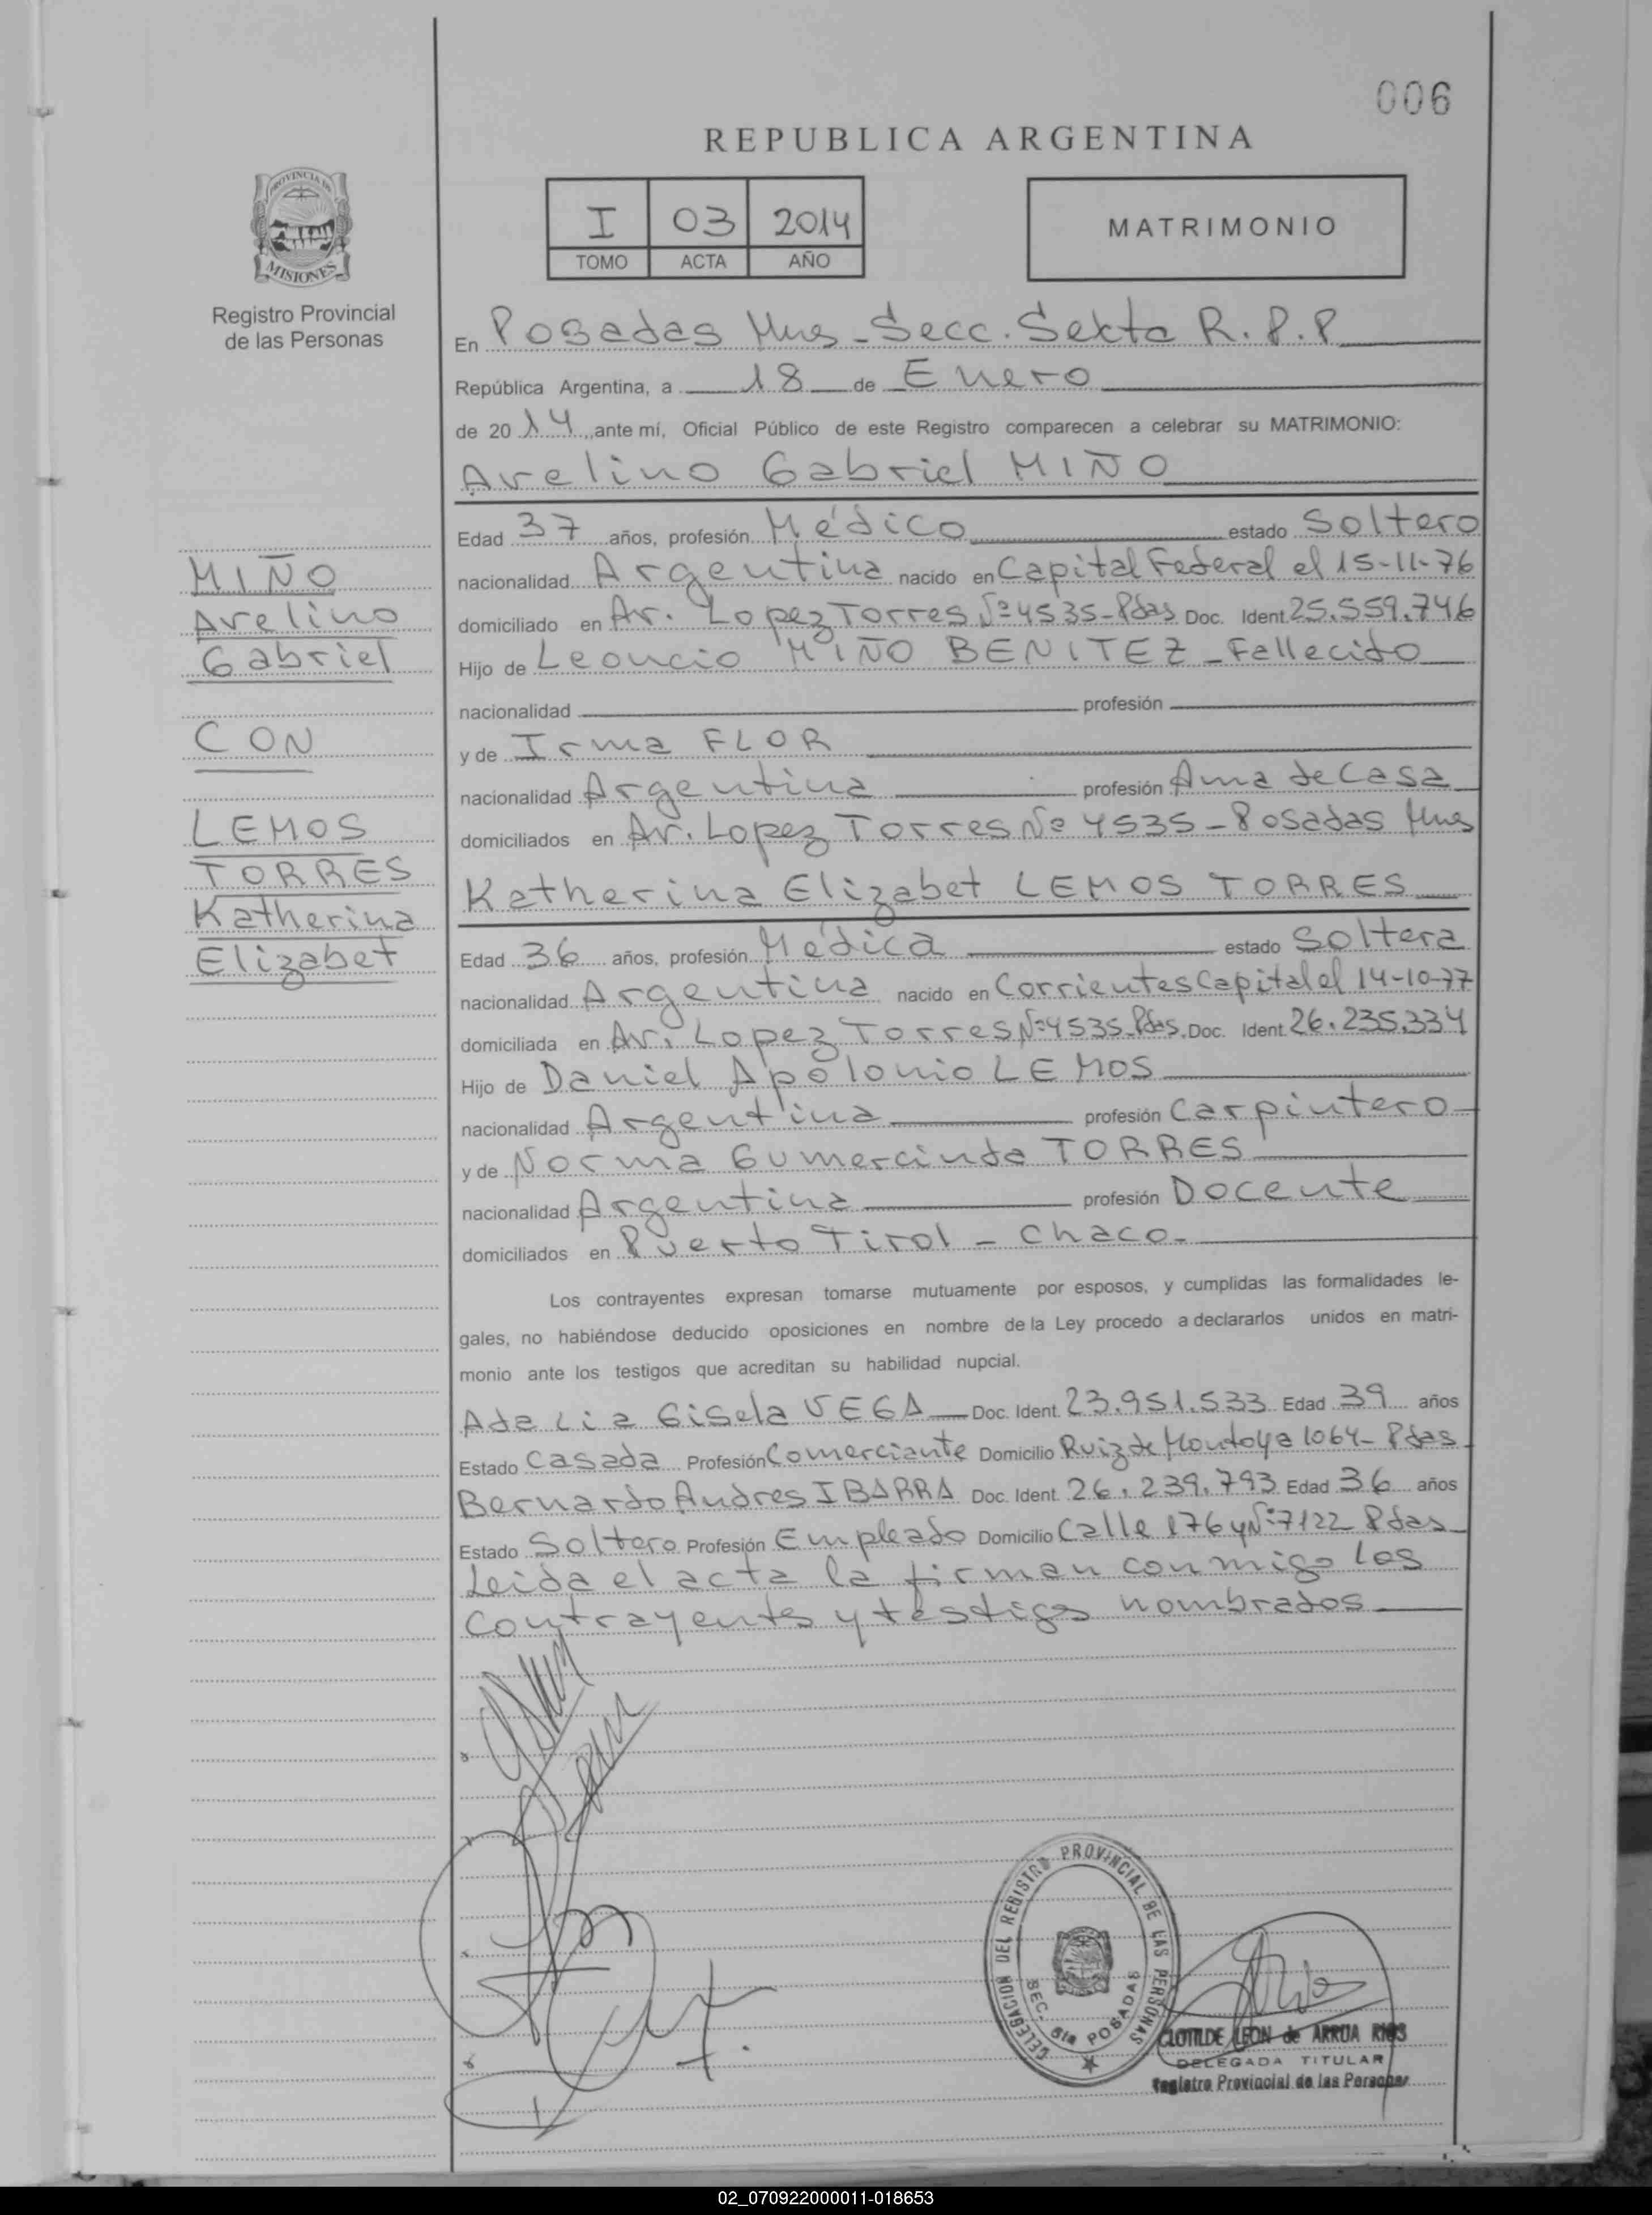 006
REPUBLICA ARGENTINA
PROVINCIA DE
MISIONES
Registro Provincial
de las Personas
I 03 2014
TOMO ACTA AÑO
MATRIMONIO
En Posadas Mns - Secc. Sexta R.P.P
República Argentina, a 18 de Enero
de 2014, ante mí, Oficial Público de este Registro comparecen a celebrar su MATRIMONIO:
Avelino Gabriel MIÑO
Edad 37 años, profesión Médico estado Soltero
nacionalidad Argentina nacido en Capital Federal el 15-11-76
domiciliado en Av. Lopez Torres Nº 4535 - Pdas Doc. Ident. 25.559.746
Hijo de Leoncio MIÑO BENITEZ - Fallecido
nacionalidad profesión
y de Irma FLOR
nacionalidad Argentina profesión Ama de Casa
domiciliados en Av. Lopez Torres Nº 4535 - Posadas Mns
Katherina Elizabet LEMOS TORRES
Edad 36 años, profesión Médica estado Soltera
nacionalidad Argentina nacido en Corrientes Capital el 14-10-77
domiciliada en Av. Lopez Torres Nº 4535 - Pdas. Doc. Ident. 26.235.334
Hijo de Daniel Apolonio LEMOS
nacionalidad Argentina profesión Carpintero
y de Norma Gumercinda TORRES
nacionalidad Argentina profesión Docente
domiciliados en Puerto Tirol - Chaco -
Los contrayentes expresan tomarse mutuamente por esposos, y cumplidas las formalidades le-
gales, no habiéndose deducido oposiciones en nombre de la Ley procedo a declararlos unidos en matri-
monio ante los testigos que acreditan su habilidad nupcial.
Ada Lia Gisela VEGA Doc. Ident. 23.951.533 Edad 39 años
Estado Casada Profesión Comerciante Domicilio Ruiz de Montoya 1064 - Pdas
Bernardo Andres IBARRA Doc. Ident. 26.239.793 Edad 36 años
Estado Soltero Profesión Empleado Domicilio Calle 176 y Nº 7122 Pdas
Leida el acta la firman conmigo los
contrayentes y testigos nombrados
MIÑO
Avelino
Gabriel
CON
LEMOS
TORRES
Katherina
Elizabet
DELEGACION DEL REGISTRO PROVINCIAL DE LAS PERSONAS
SEC. 6ta POSADAS
CLOTILDE LEON de ARRUA RIOS
DELEGADA TITULAR
Registro Provincial de las Personas
02_070922000011-018653